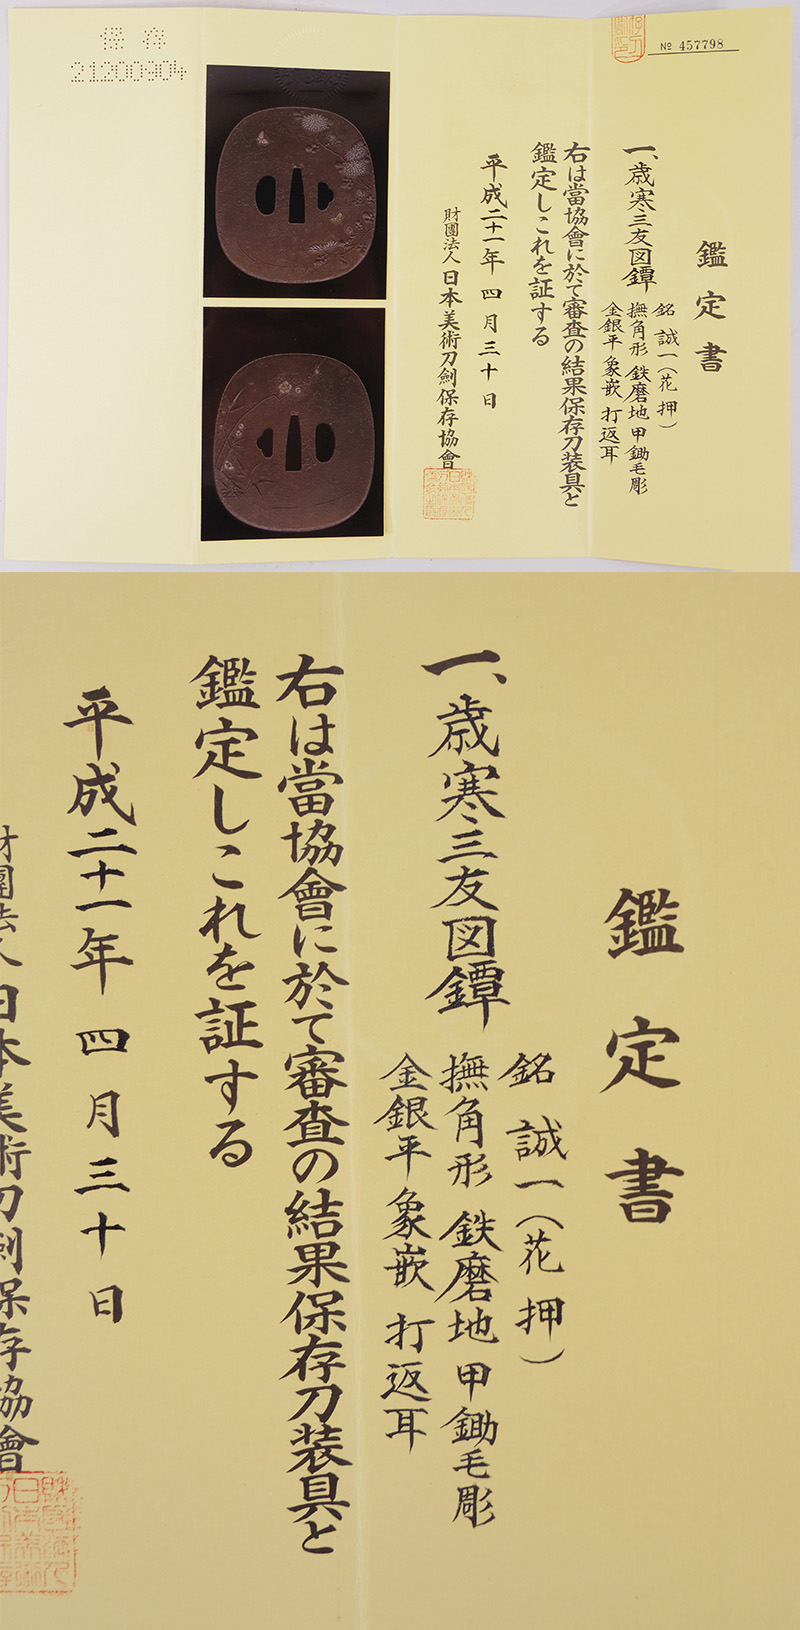 保存
21200904
№ 457798
鑑定書
一、歳寒三友図鐔
銘 誠一(花押)
撫角形 鉄磨地 甲鋤毛彫
金銀平象嵌 打返耳
右は當協會に於て審査の結果保存刀装具と
鑑定しこれを証する
平成二十一年 四月三十日
財團法人 日本美術刀劍保存協會
鑑定書
一、歳寒三友図鐔
銘 誠一(花押)
撫角形 鉄磨地 甲鋤毛彫
金銀平象嵌 打返耳
右は當協會に於て審査の結果保存刀装具と
鑑定しこれを証する
平成二十一年 四月三十日
財團法人 日本美術刀劍保存協會